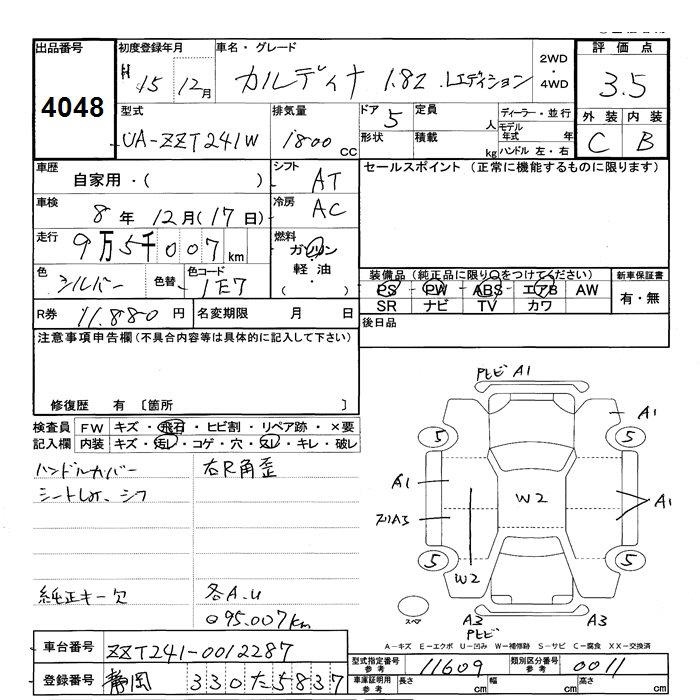 出品番号 初度登録年月 車名・グレード 2WD・4WD 評価点
4048 H 15 12月 カルディナ 1.8Z Lエディション 3.5
型式 排気量 ドア 5 定員 人 ディーラー・並行 外装 内装
UA-ZZT241W 1800 CC 形状 積載 kg モデル年式 年 ハンドル 左・右 C B
車歴 自家用・( ) シフト AT セールスポイント (正常に機能するものに限ります)
車検 8年 12月(17日) 冷房 AC
走行 9万5千007km 燃料 ガソリン 軽油 (・)
色 シルバー 色替 色コード 1E7 装備品(純正品に限り○をつけてください) 新車保証書
PS PW ABS エアB AW 有・無
SR ナビ TV カワ
R券 11.880円 名変期限 月 日 後日品
注意事項申告欄(不具合内容等は具体的に記入して下さい)
修復歴 有 〔箇所 〕
検査員 FW キズ・飛石・ヒビ割・リペア跡・×要
記入欄 内装 キズ・汚レ・コゲ・穴・スレ・キレ・破レ
ハンドルカバー 右R角歪
シートしみ、シワ
純正キー欠 各A.U
95.007km
PヒビA1
A1
5 5
A1 A1
W2
スリA3
W2
5 5
スペア
A3 A3
Pヒビ
A-キズ E-エクボ U-凹み W-補修跡 S-サビ C-腐食 XX-交換済
車台番号 ZZT241-0012287
型式指定番号 参考 11609 類別区分番号 参考 0011
登録番号 静岡 330た5837
車庫証明用 参考 長さ cm 幅 cm 高さ cm